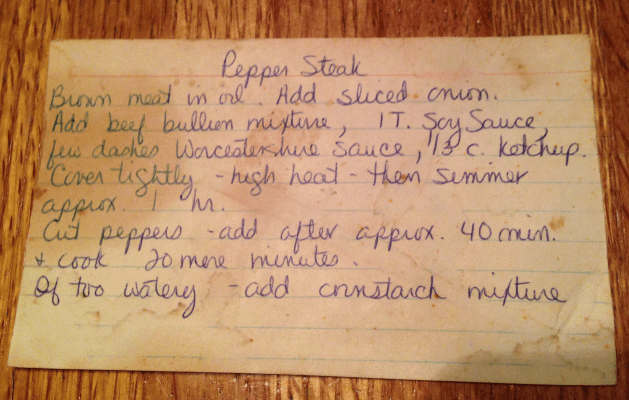 Pepper Steak
Brown meat in oil. Add sliced onion.
Add beef bullion mixture, 1 T. Soy Sauce,
few dashes Worcestershire sauce, 1/3 c. ketchup.
Cover tightly - high heat - then simmer
approx. 1 hr.
Cut peppers - add after approx. 40 min.
+ cook 20 more minutes.
If too watery - add cornstarch mixture